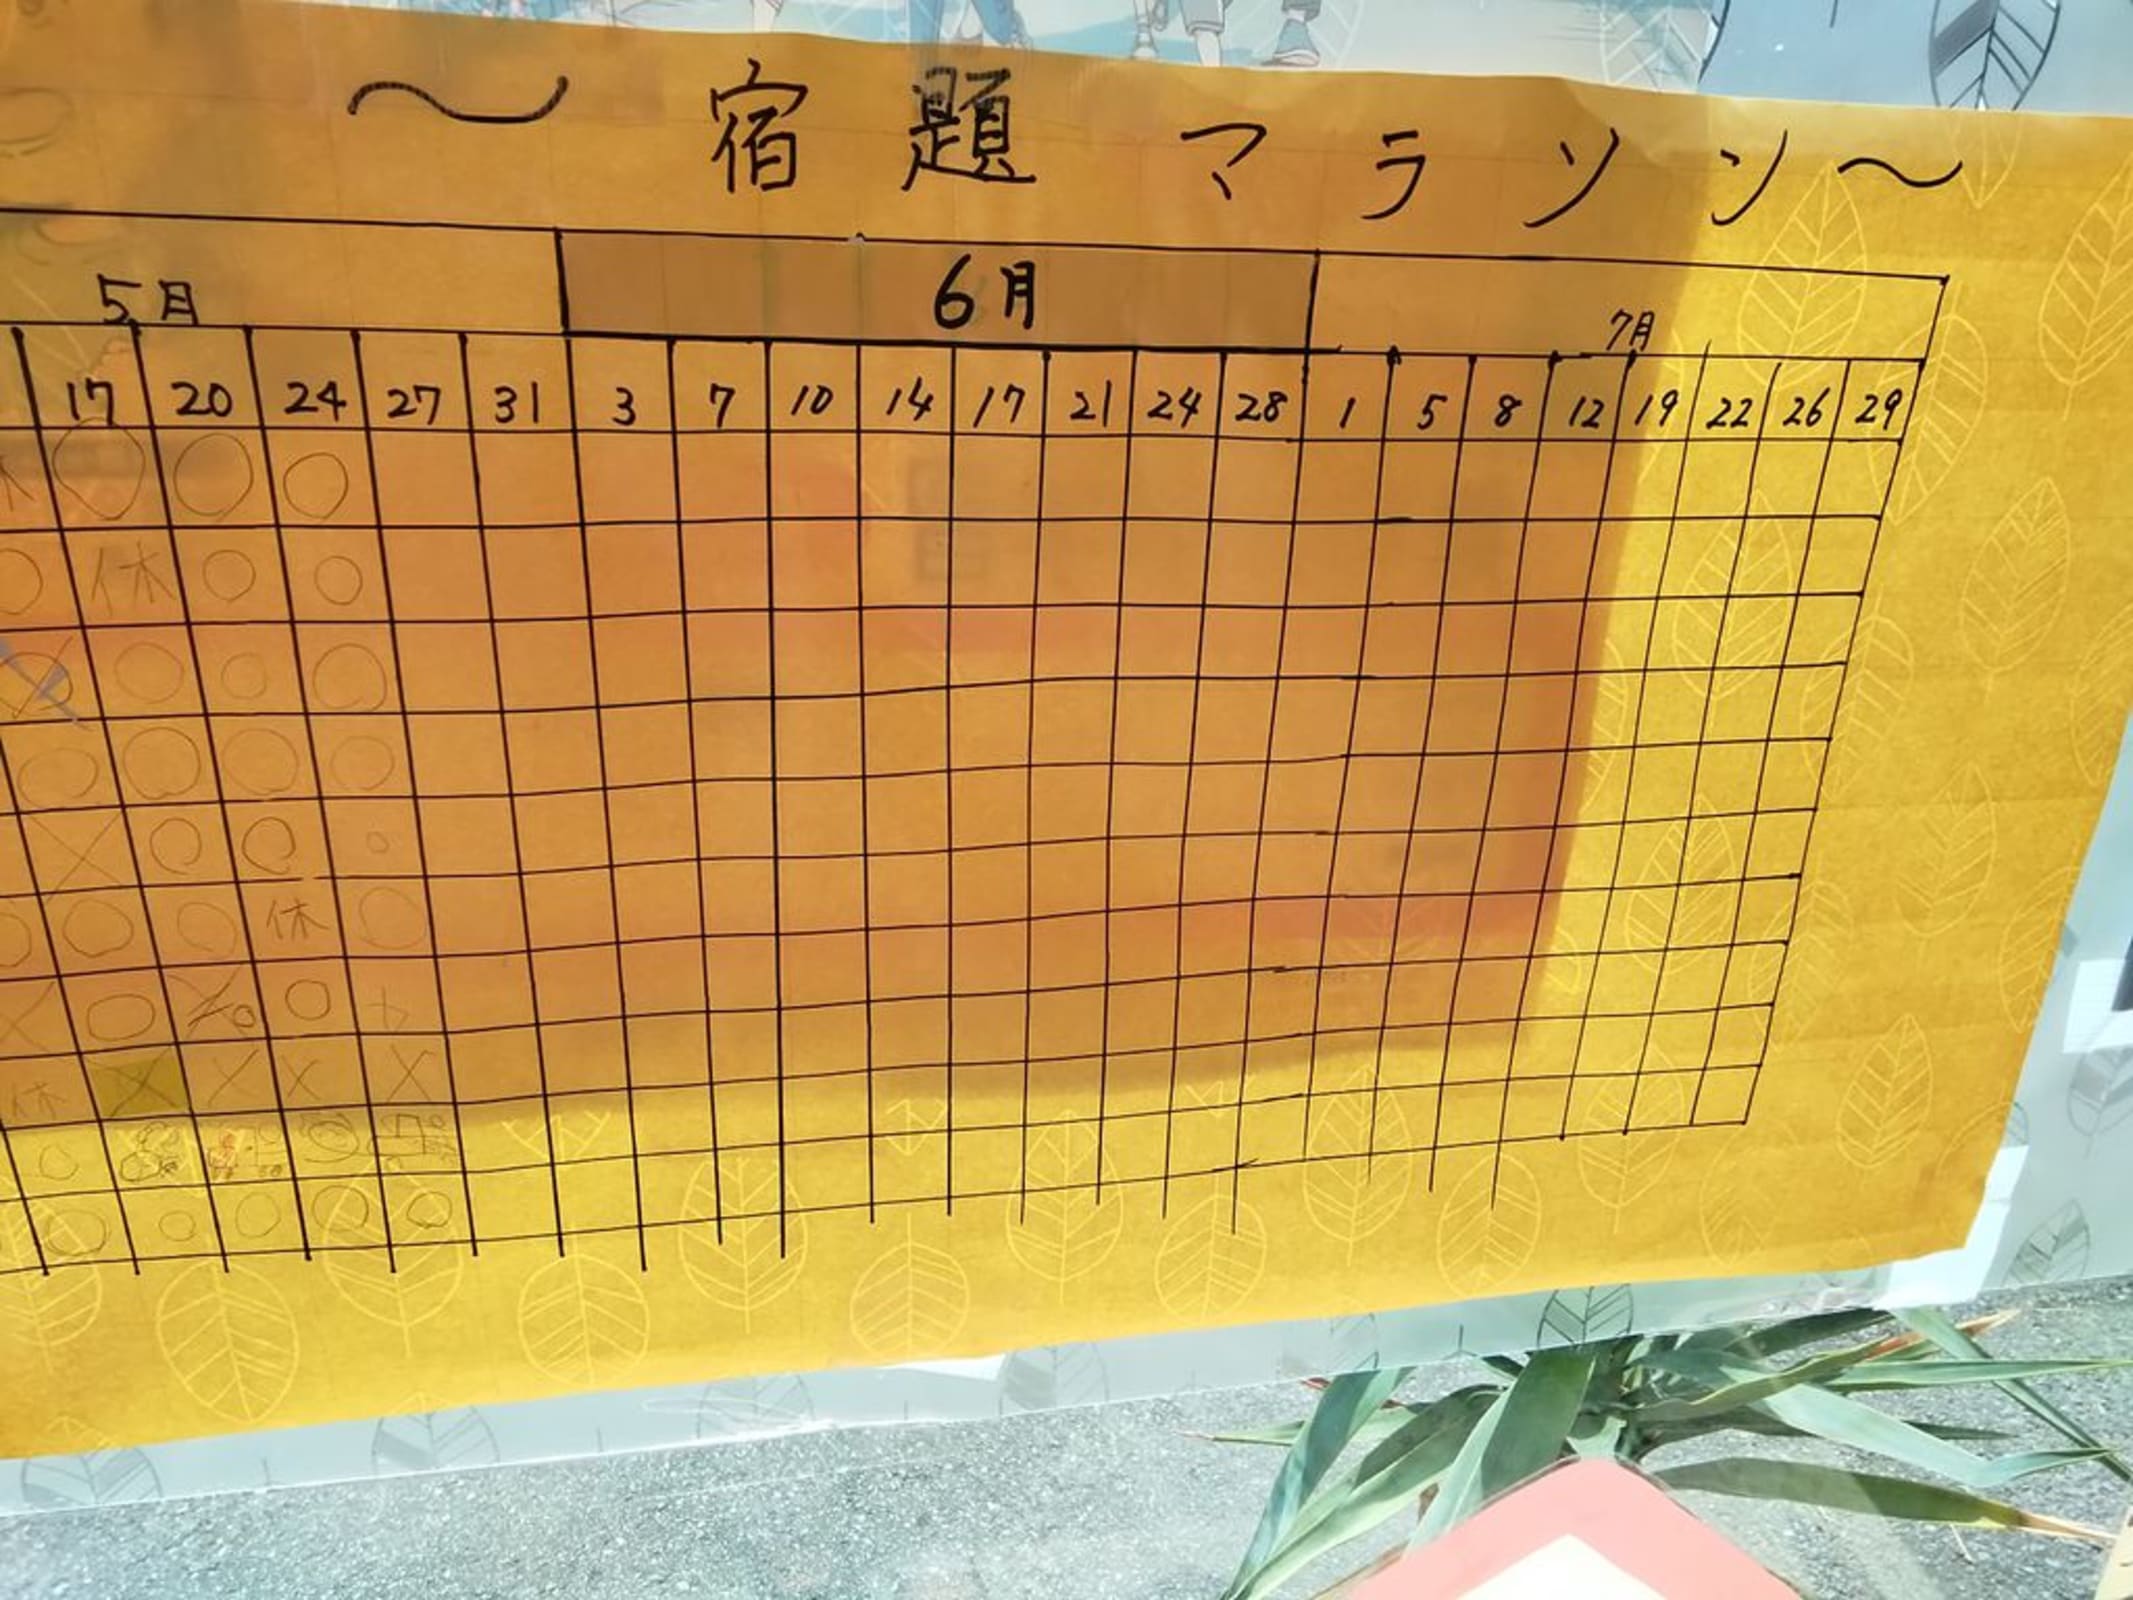 ～宿題マラソン～
5月 6月 7月
17 20 24 27 31 3 7 10 14 17 21 24 28 1 5 8 12 19 22 26 29
休 ○ ○ ○
○ 休 ○ ○
○ ○ ○
○ ○ ○ ○
× ○ ○ ○
○ ○ ○ 休 ○
× ○ ○
休 × × × ×
○
○ ○ ○ ○ ○